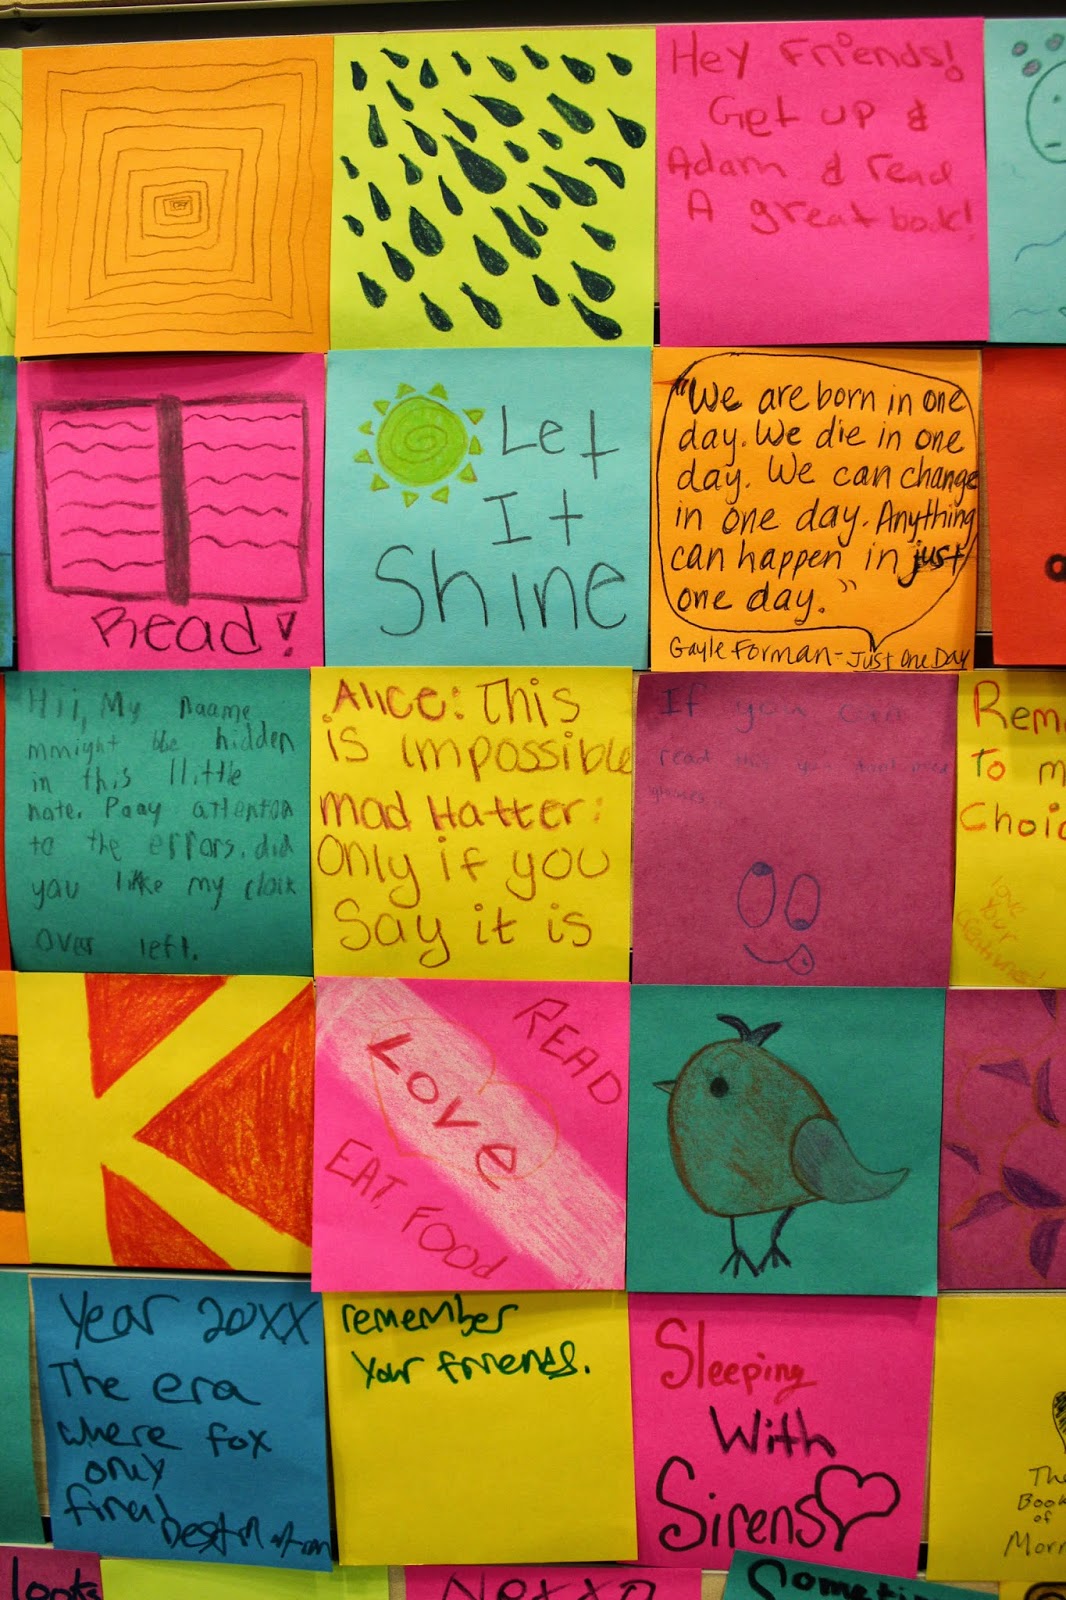 Hey Friends!
Get up &
Adam & read
A great book!
Read!
Let
It
Shine
"We are born in one
day. We die in one
day. We can change
in one day. Anything
can happen in just
one day."
Gayle Forman - Just One Day
Hii, My naame
mmight bbe hidden
in this llittle
note. Paay attention
to the errors. did
you likke my cloak
over left.
Alice: This
is impossible
Mad Hatter:
Only if you
Say it is
If you can
read this you
glasses
Rem
To m
Choic
Love
Your
Creations!
Love
READ
EAT FOOD
Year 20XX
The era
where fox
only
final
remember
your friends.
Sleeping
With
Sirens
The
Book
of
Morm
looks
Someti